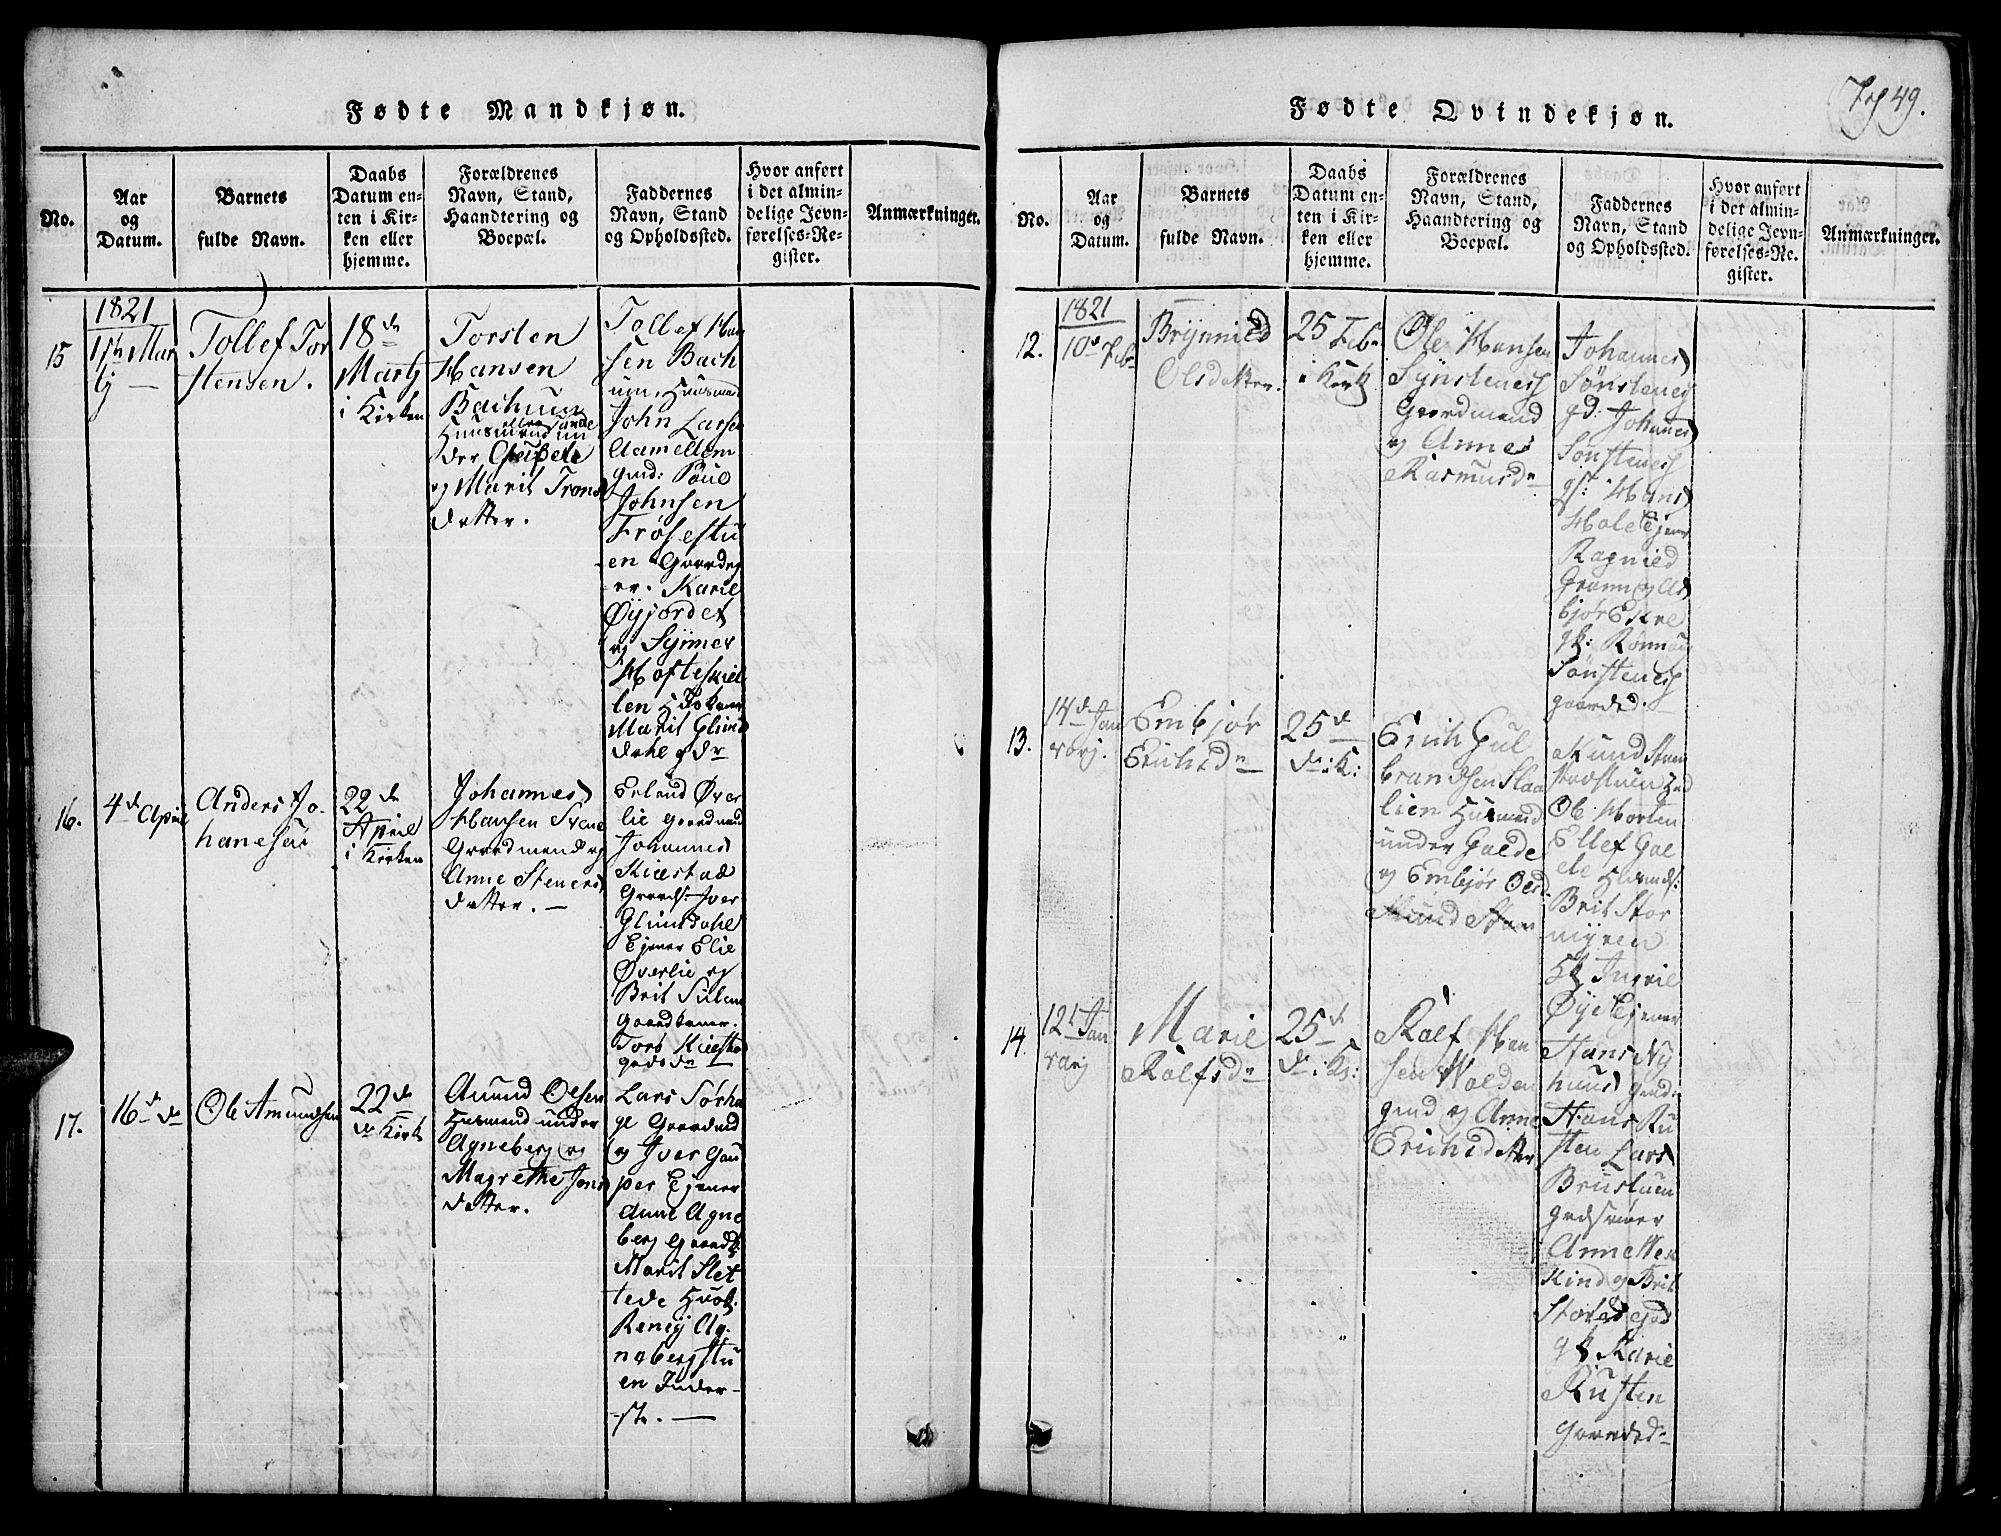 Fødte Mandkjøn.
No.
Aar
og
Datum.
Barnets
fulde Navn.
Daabs
Datum en-
ten i Kir-
ken eller
hjemme.
Forældrenes
Navn, Stand,
Haandtering og
Boepæl.
Faddernes
Navn, Stand
og Opholdssted.
Hvor anført
i det almin-
delige Jevn-
førelses-Re-
gister.
Anmærkninger.
15
1821
Mar
tj
Tollef Tor
stensen.
18de
Martj
i Kirken
Torsten
Hansen
Bachum
Huusmand un
der
og Marit Trons
datter.
Tollef Han
sen Bach
um, Huusmand
John Larsen
Aamellem
gmd: Poul
Johnsen
Frøsestu
en Gaardeg
er. Karie
Øyjordet
og Synner
Kofteskiel
len
Marit Glims
dahl gdr
16.
4de April
Anders Jo-
hanesen
22de
April
i Kirken
Johannes
Hansen
Gaardmand og
Anne Steners
datter. —
Erland Øver
lie gaardmand
Johannes
Kiestad
Gaards: Iver
Glimsdahl
Ejener Elie
Øverlie og
Brit Sulem
gaardkoner.
Torø Kiestad
17.
16de do
Ole Amundsen
22de
do Kirk
Amund Olsen
Husmand under
Agneberg og
Magrethe Jons
datter.
Lars Sørha
ge Gaardmd
og Iver Gau
per Ejener
Anne Agne
berg Gaardk:
Marit Slet
tede Husk.
Reney Ag-
neberg Stu
en Inder-
st. —
Fødte Qvindekjøn.
49.
No.
Aar
og
Datum.
Barnets
fulde Navn.
Daabs
Datum en-
ten i Kir-
ken eller
hjemme.
Forældrenes
Navn, Stand,
Haandtering og
Boepæl.
Faddernes
Navn, Stand
og Opholdssted.
Hvor anført
i det almin-
delige Jevn-
førelses-Re-
gister.
Anmærkninger.
12.
1821
10de Feb
Brynnild
Olsdatter.
25 Feb
i Kirk.
Ole Hansen
Synstenes
Gaardmand
og Anne
Rasmusdr
Johannes
Sønstenes
gd. Johannes
Sønstenes
gs: Hans
Hole Ejener
Ragnild
Gram og As
bjør Ekre
gk: Rønnaug
Sønstenes
gaarded. —
13.
14de Jan
uarj.
Embjør
Erichsdr
25de
do: K:
Erich Gul
brandsen Slaa
lien Husmand
under Galde
og Embjør Olsd.
Ole Morten
Ellef Gal
de
Brit Stor
myren
Hk Ingrie
Øye Ejener
14.
12t Jan
uarj
Marie
Rolfsdr
25de
do: K:
Rolf
sen Volden
gmd og Anne
Erichsdatter
Hans Ny
huus gmd:
Hans Ru
sten Lars
Bristuen
Anne
kind og Brit
gk Karie
Rusten
gaarded